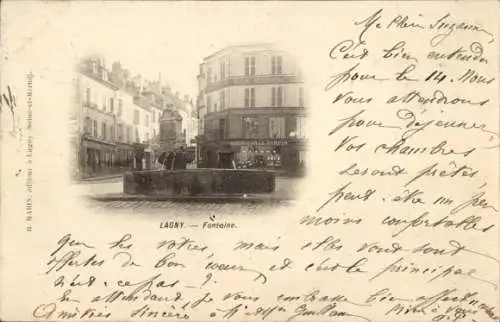 Ma Chère Suzanne
C'est bien entendu
pour le 14. Nous
vous attendrons
pour déjeuner.
Vos chambres
sont prêtes,
peut-être un peu
moins confortables
LAGNY. — Fontaine.
que les vôtres, mais elles vous sont
offertes de bon coeur et c'est le principal
n'est-ce pas?
En attendant je vous embrasse bien affectueusement
Amitiés sincères à
H. MARIN, éditeur à Lagny (Seine-et-Marne).